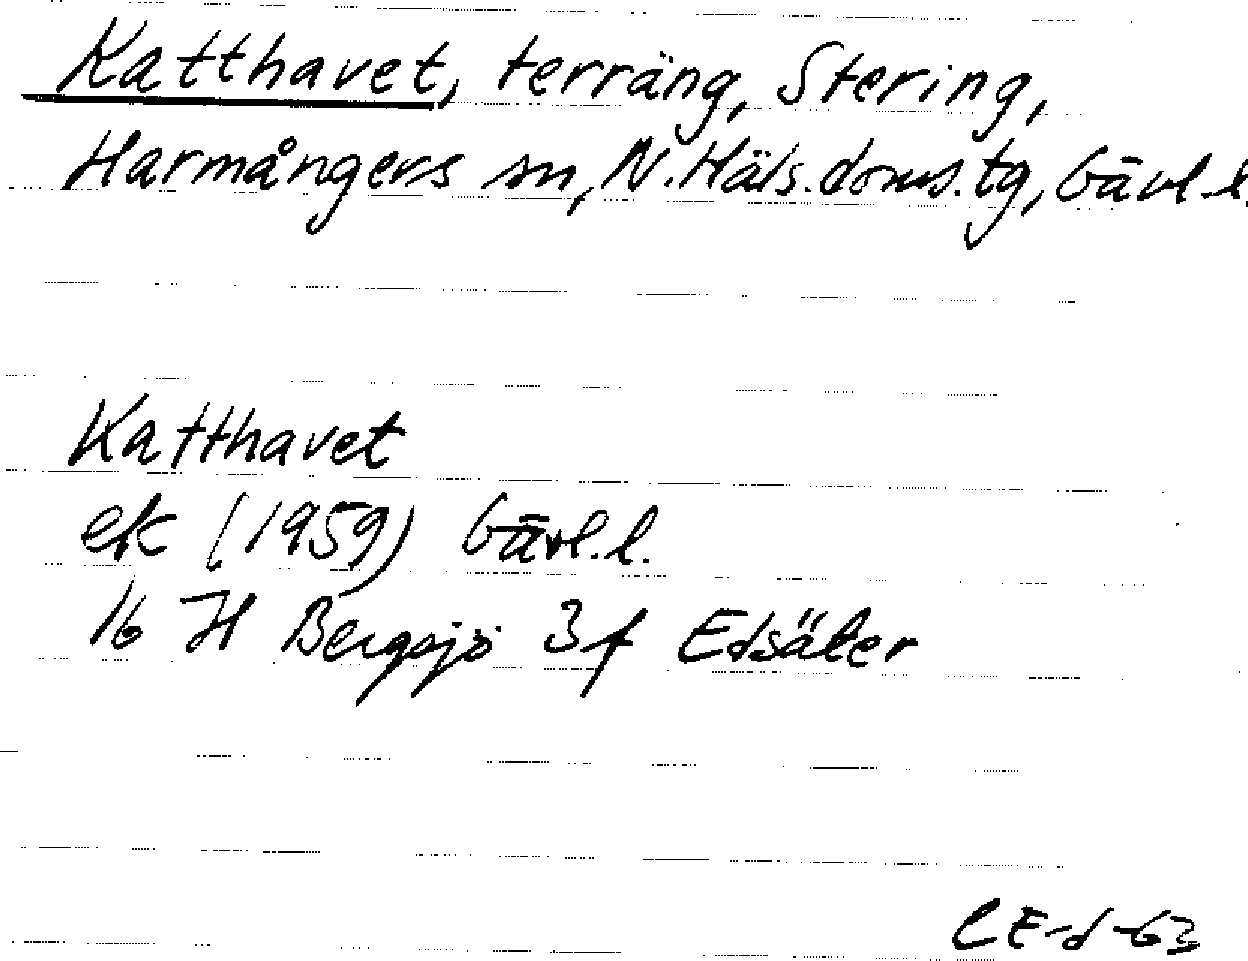 Katthavet, terräng, Stering,
Harmångers sn, N. Häls. doms. tg, Gävl. l.
Katthavet
ek (1959) Gävl. l.
16 H Bergsjö 3f Edsäter
CE-d-63